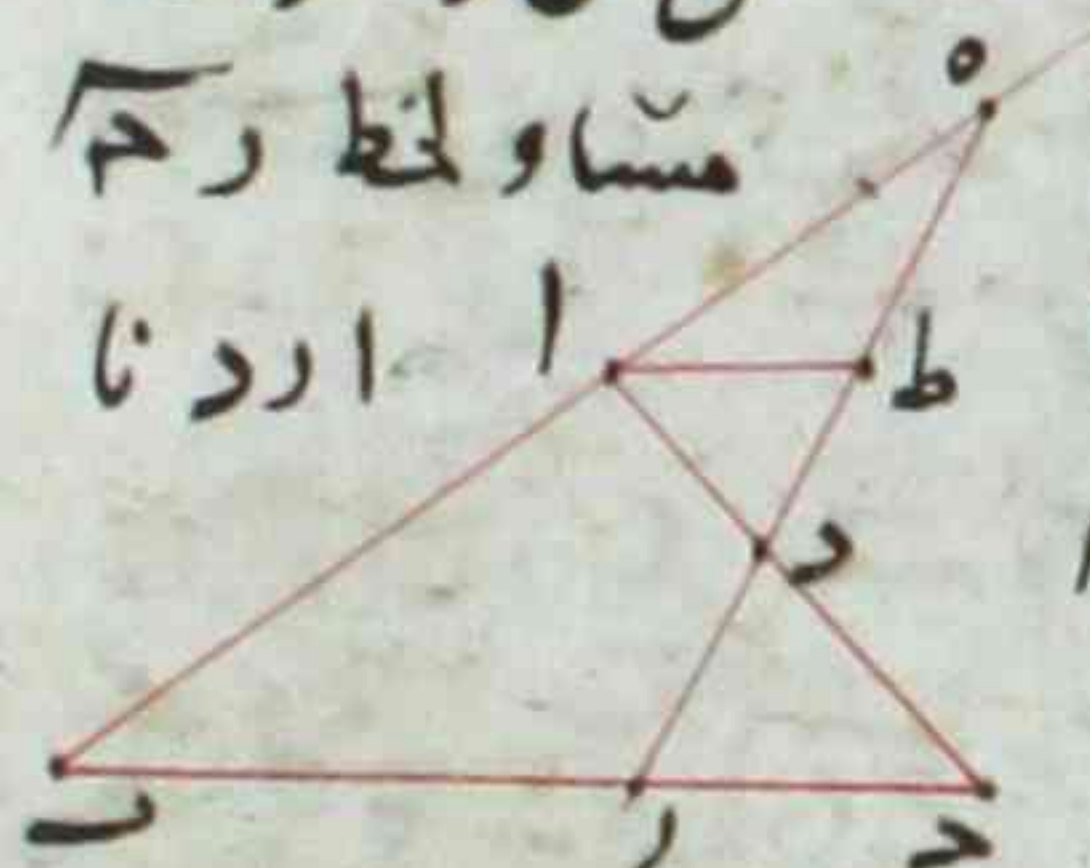 ه
مساو لخط رح
ا اردنا
ط
د
ب ر ح